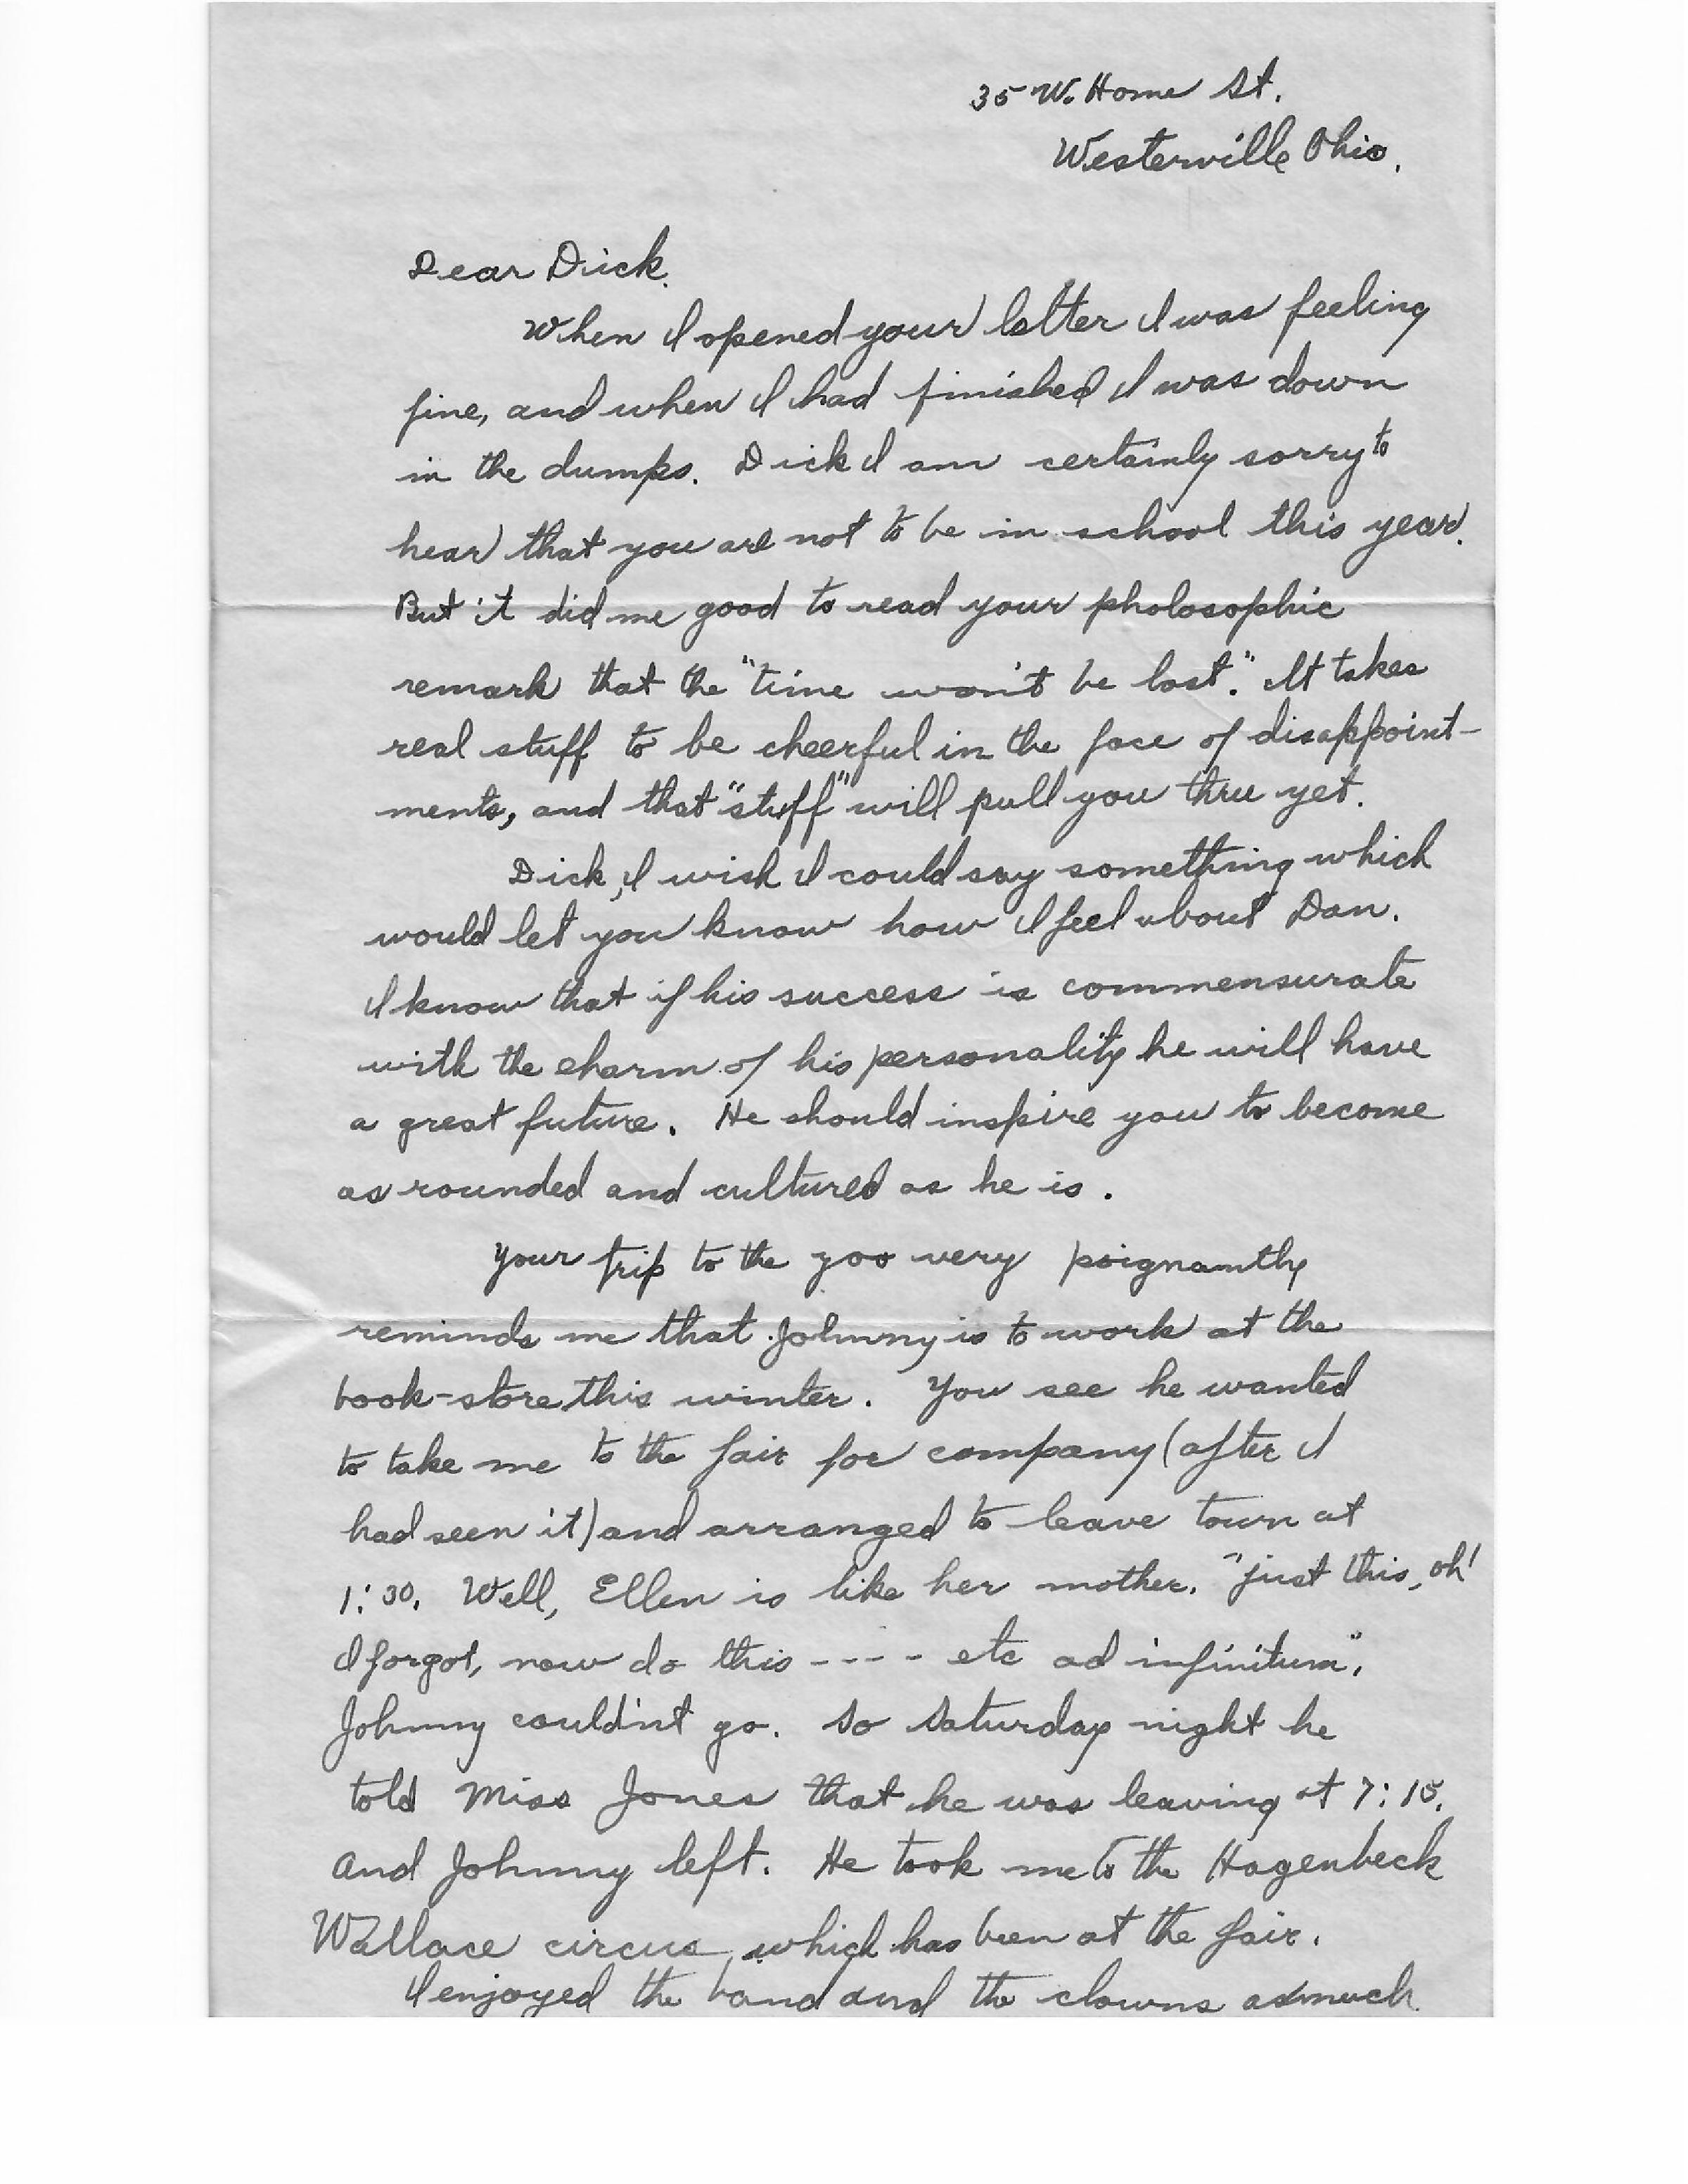 35 W. Home St.
Westerville Ohio.
Dear Dick.
When I opened your letter I was feeling
fine, and when I had finished I was down
in the dumps. Dick I am certainly sorry to
hear that you are not to be in school this year.
But it did me good to read your pholosophic
remark that the "time won't be lost." It takes
real stuff to be cheerful in the face of disappoint-
ments, and that "stuff" will pull you thru yet.
Dick, I wish I could say something which
would let you know how I feel about Dan.
I know that if his success is commensurate
with the charm of his personality he will have
a great future. He should inspire you to become
as rounded and cultured as he is.
Your trip to the zoo very poignantly
reminds me that Johnny is to work at the
book-store this winter. You see he wanted
to take me to the fair for company (after I
had seen it) and arranged to leave town at
1:30. Well, Ellen is like her mother. "just this, oh!
I forgot, now do this ---- etc ad infinitum".
Johnny couldn't go. So Saturday night he
told Miss Jones that he was leaving at 7:15.
And Johnny left. He took me to the Hagenbeck
Wallace circus, which has been at the fair.
I enjoyed the band and the clowns as much